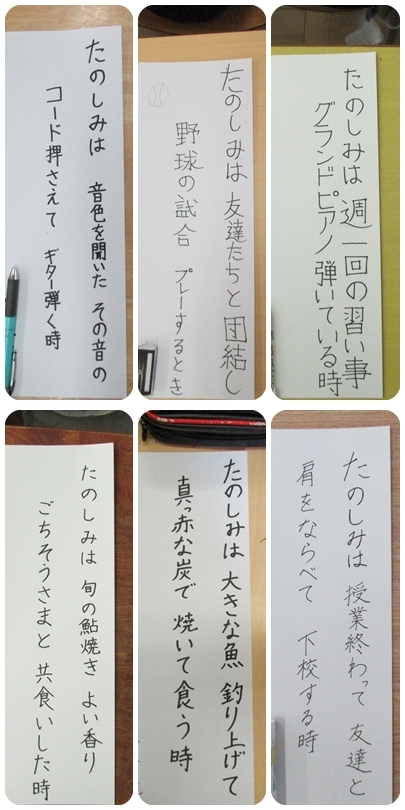 たのしみは 音色を聞いた その音の
コード押さえて ギター弾く時
たのしみは 友達たちと 団結し
野球の試合 プレーするとき
たのしみは 週一回の習い事
グランドピアノ 弾いている時
たのしみは 旬の鮎焼き よい香り
ごちそうさまと 共食いした時
たのしみは 大きな魚 釣り上げて
真っ赤な炭で 焼いて食う時
たのしみは 授業終わって 友達と
肩をならべて 下校する時